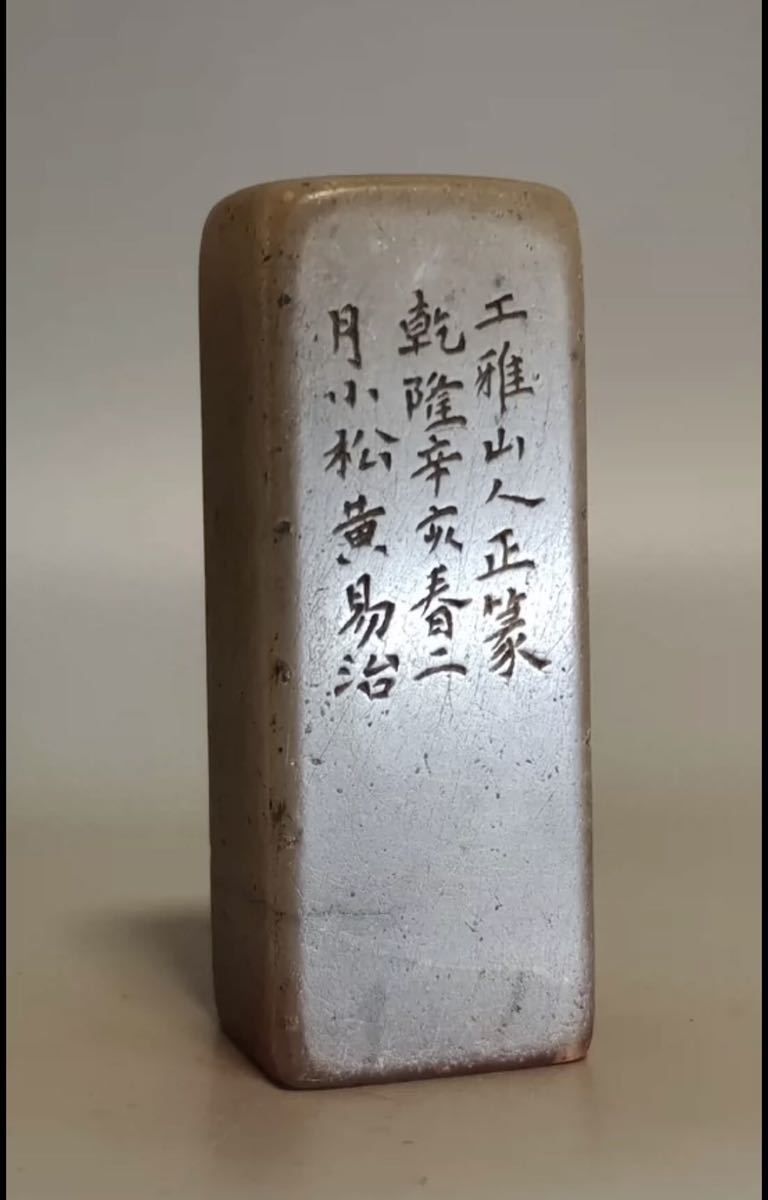 工雅山人正篆
乾隆辛亥春二
月小松黄易治